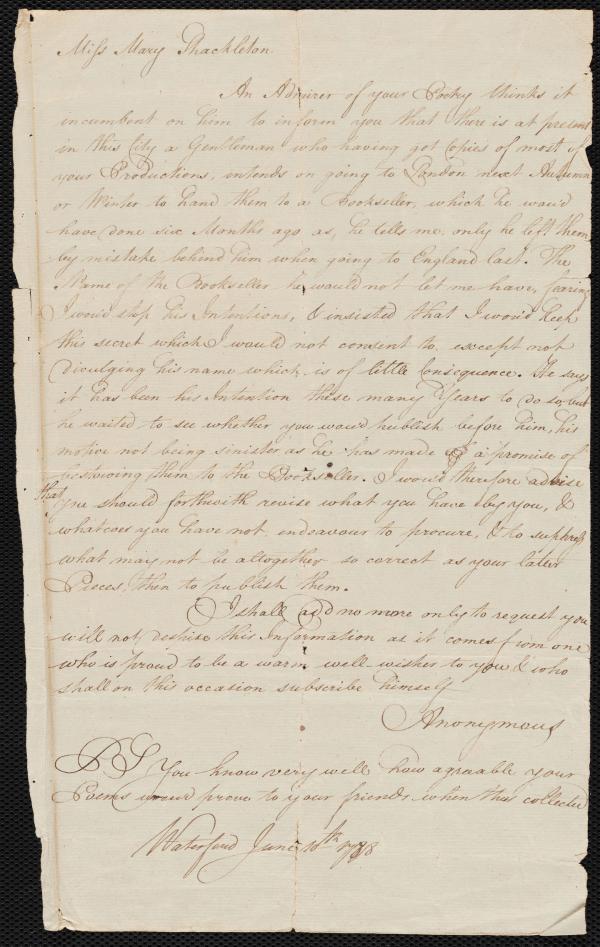 Miss Mary Shackleton
An Admirer of your Poetry thinks it
incumbent on him to inform you that there is at present
in this City a Gentleman who having got Copies of most of
your Productions, intends on going to London next Autumn
or Winter to hand them to a Bookseller, which he wou'd
have done six Months ago as, he tells me, only he left them
by mistake behind him when going to England last. The
Name of the Bookseller he would not let me have, fearing
I wou'd stop his Intentions, & insisted that I wou'd keep
this secret which I would not consent to, except not
divulging his name which is of little Consequence. He says
it has been his Intention these many Years to do so, but
he waited to see whether you wou'd publish before him, his
motive not being sinister as he has made a promise of
bestowing them to the Bookseller. I wou'd therefore advise
that you should forthwith revise what you have by you, &
whatever you have not endeavour to procure, & to suppress
what may not be altogether so correct as your latter
Pieces, then to publish them.
I shall add no more only to request you
will not despise this Information as it comes from one
who is proud to be a warm well-wisher to you & who
shall on this occasion subscribe himself
Anonymous
PS You know very well how agreable your
Poems wou'd prove to your friends when thus collected
Waterford June 10th